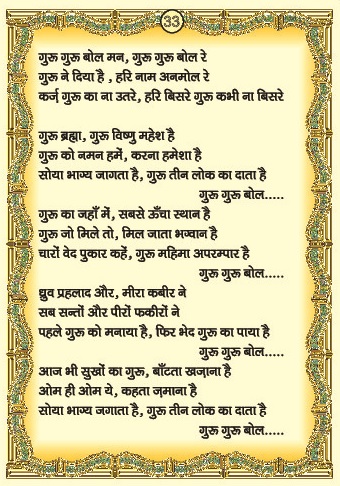 33
गुरू गुरू बोल मन, गुरू गुरू बोल रे
गुरू ने दिया है , हरि नाम अनमोल रे
कर्ज़ गुरू का ना उतरे, हरि बिसरे गुरू कभी ना बिसरे
गुरू ब्रह्मा, गुरू विष्णु महेश है
गुरू को नमन हमें, करना हमेशा है
सोया भाग्य जागता है, गुरू तीन लोक का दाता है
गुरू गुरू बोल.....
गुरू का जहाँ में, सबसे ऊँचा स्थान है
गुरू जो मिले तो, मिल जाता भगवान है
चारों वेद पुकार कहें, गुरू महिमा अपरम्पार है
गुरू गुरू बोल.....
ध्रुव प्रहलाद और, मीरा कबीर ने
सब सन्तों और पीरों फकीरों ने
पहले गुरू को मनाया है, फिर भेद गुरू का पाया है
गुरू गुरू बोल.....
आज भी सुखों का गुरू, बाँटता खज़ाना है
ओम ही ओम ये, कहता ज़माना है
सोया भाग्य जगाता है, गुरू तीन लोक का दाता है
गुरू गुरू बोल.....